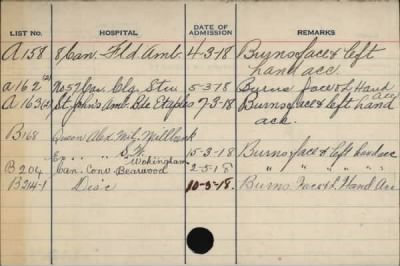 LIST NO. HOSPITAL DATE OF ADMISSION REMARKS
A 158 8/Can. Fld. Amb. 4-3-18 Burns face & left
hand acc.
A 162(2) No 57 Cas. Clg. Stn. 5-3-18 Burns face & L. Hand acc
A 163(2) St. John's Amb. Bde Etaples 7-3-18 Burns face & left hand
acc.
B 168 Queen Alex. Mil. Millbank
" " S.W. 15-3-18 Burns face & left hand acc
Wokingham
B 204 Can. Conv Bearwood 2-5-18 " " " " "
B 214-1 Disc 10-5-18. Burns. Face & L. Hand Acc